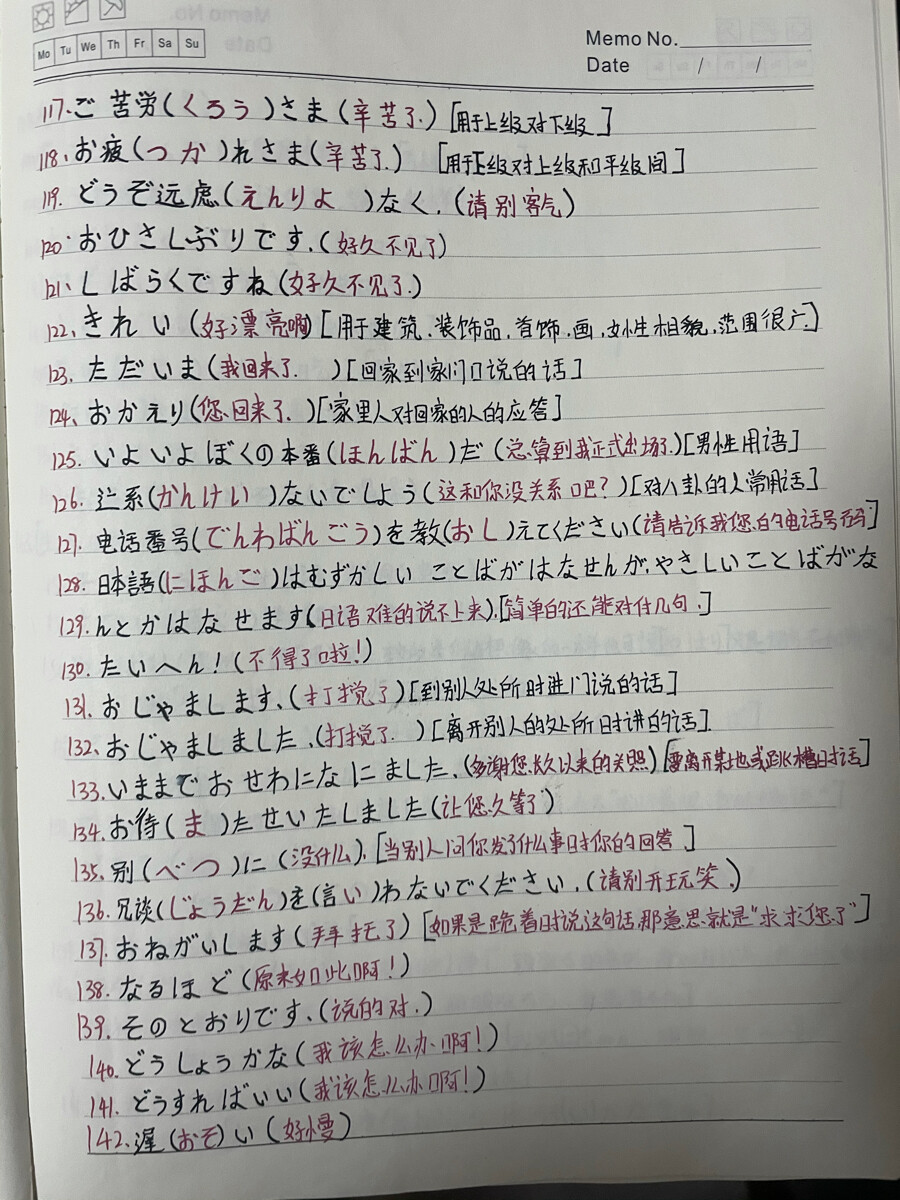 Mo Tu We Th Fr Sa Su
Memo No.
Date / /
117.ご苦労(くろう)さま(辛苦了.)[用于上级对下级]
118.お疲(つか)れさま(辛苦了.)[用于下级对上级和平级间]
119.どうぞ远虑(えんりよ)なく.(请别客气)
120.おひさしぶりです.(好久不见了)
121.しばらくですね(好久不见了.)
122.きれい(好漂亮啊)[用于建筑.装饰品.首饰.画.女性相貌.范围很广.]
123.ただいま(我回来了.)[回家到家门口说的话]
124.おかえり(您回来了.)[家里人对回家的人的应答]
125.いよいよぼくの本番(ほんばん)だ(总算到我正式出场了.)[男性用语]
126.关系(かんけい)ないでしよう(这和你没关系吧?)[对八卦的人常用话]
127.电话番号(でんわばんごう)を教(おし)えてください(请告诉我您的电话号码]
128.日本語(にほんご)はむずかしいことばがはなせんが.やさしいことばがな
129.んとかはなせます(日语难的说不上来).[简单的还能对付几句.]
130.たいへん!(不得了啦!)
131.おじゃまします.(打搅了)[到别人处所时进门说的话]
132.おじゃましました.(打搅了.)[离开别人的处所时讲的话]
133.いままでおせわになにました.(多謝您长久以来的关照)[要离开某地或跳槽时话]
134.お待(ま)たせいたしました(让您久等了)
135.別(べつ)に(没什么).[当别人问你发了什么事时你的回答]
136.冗谈(じょうだん)を(言い)わないでください.(請别开玩笑.)
137.おねがいします(拜托了)[如果是跪着时说这句话,那意思就是"求求您了"]
138.なるほど(原来如此啊!)
139.そのとおりです.(说的对.)
140.どうしょうかな(我该怎么办啊!)
141.どうすればいい(我该怎么办啊!)
142.遅(おそ)い(好慢)